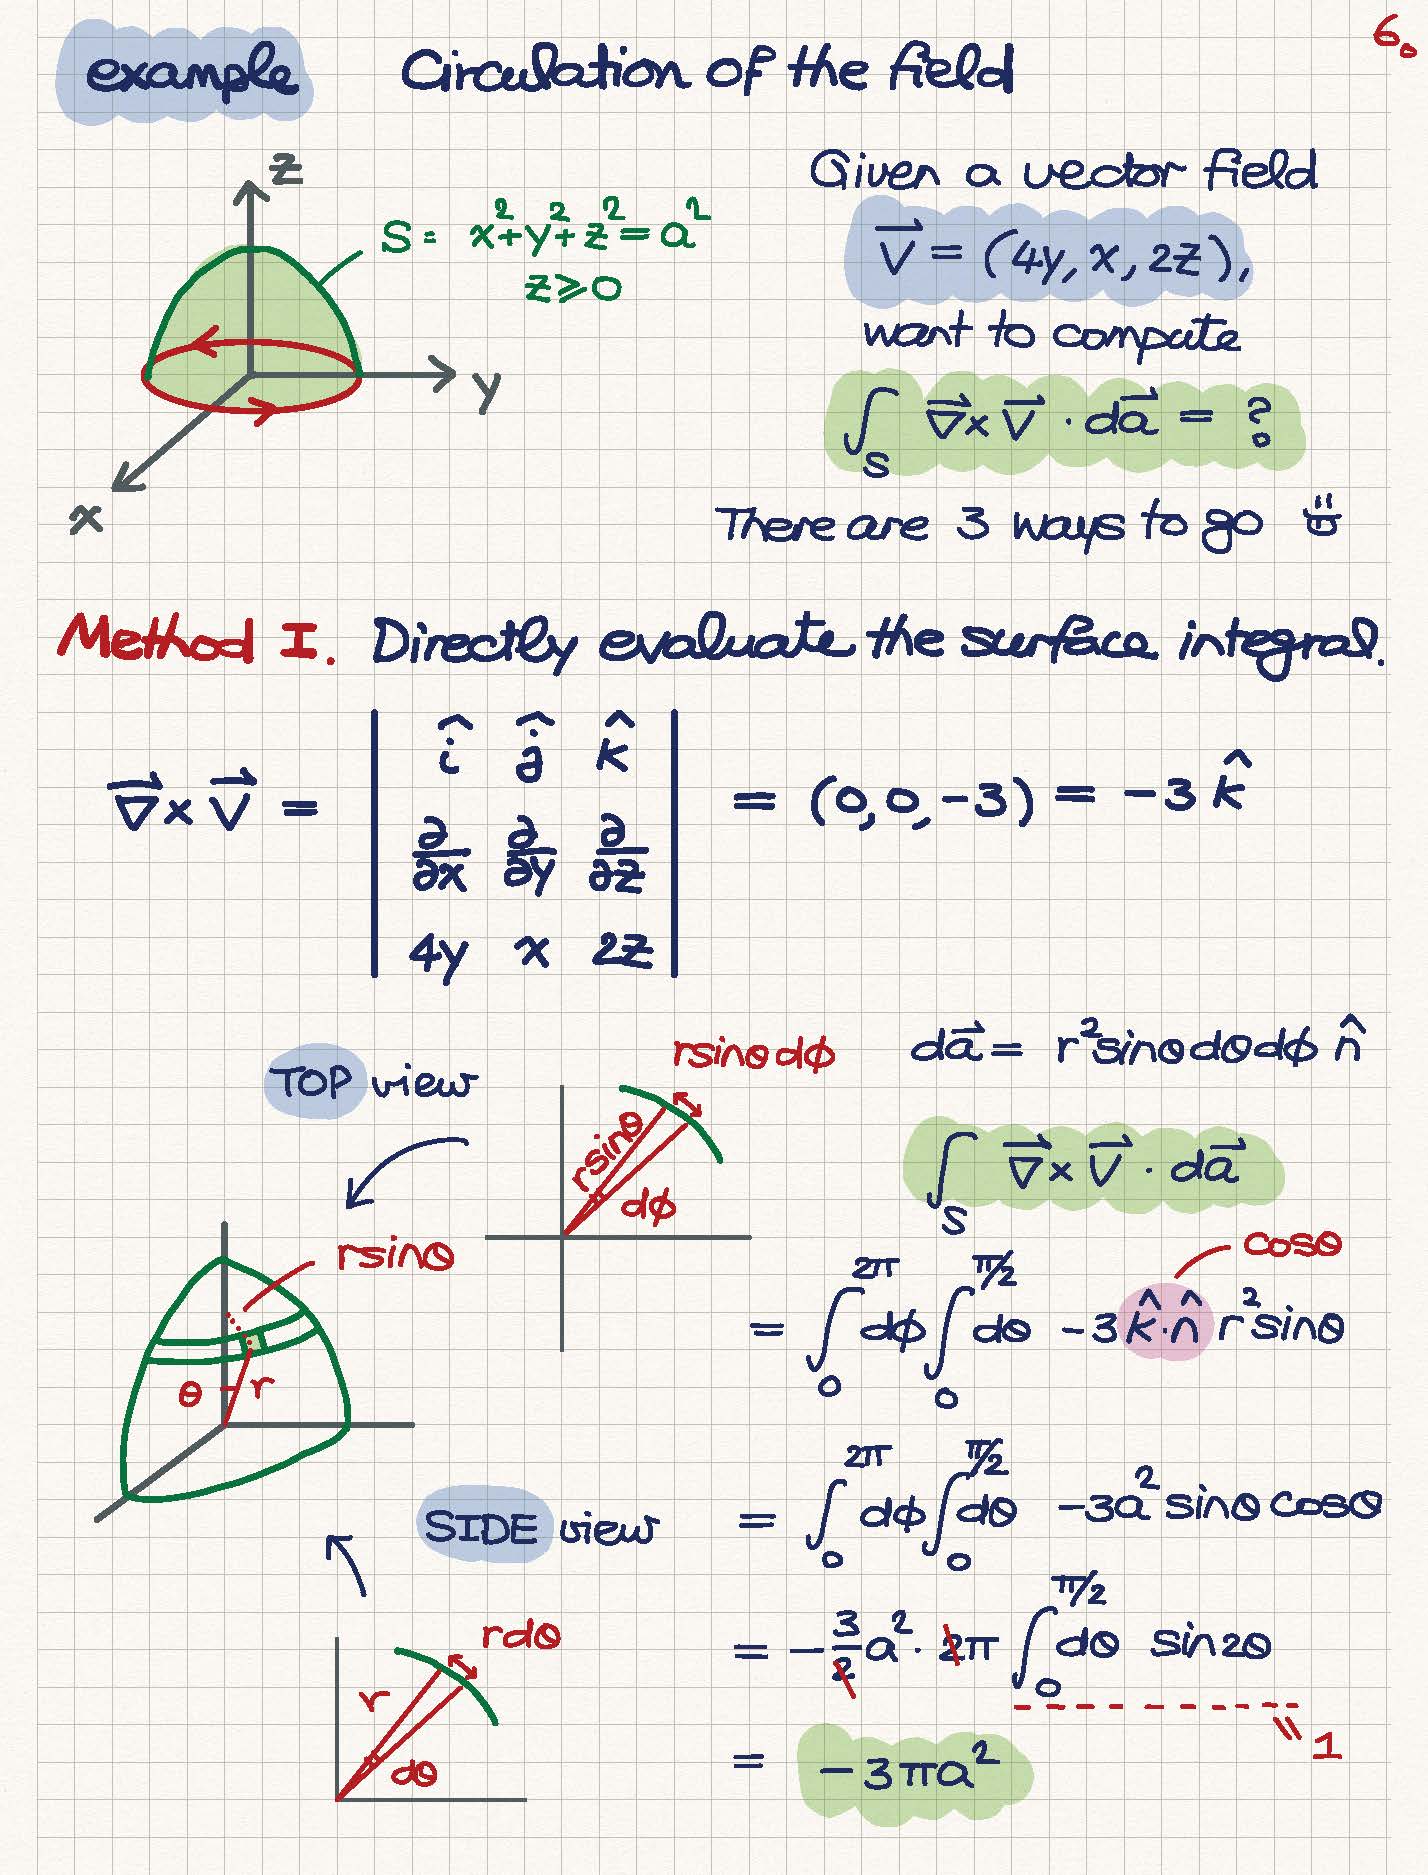 6.
example Circulation of the field
z
S = x²+y²+z² = a²
z ≥ 0
y
x
Given a vector field
V⃗ = (4y, x, 2z),
want to compute
∫_S ∇⃗×V⃗ · da⃗ = ?
There are 3 ways to go
Method I. Directly evaluate the surface integral.
∇⃗×V⃗ = | î ĵ k̂ | = (0, 0, -3) = -3 k̂
∂/∂x ∂/∂y ∂/∂z
4y x 2z
TOP view
rsinθdϕ
rsinθ
dϕ
da⃗ = r²sinθdθdϕ n̂
∫_S ∇⃗×V⃗ · da⃗
rsinθ
θ r
cosθ
= ∫_0^{2π} dϕ ∫_0^{π/2} dθ -3 k̂·n̂ r²sinθ
= ∫_0^{2π} dϕ ∫_0^{π/2} dθ -3a² sinθ cosθ
SIDE view
rdθ
r
dθ
= -3/2 a² · 2π ∫_0^{π/2} dθ sin2θ
= 1
= -3πa²